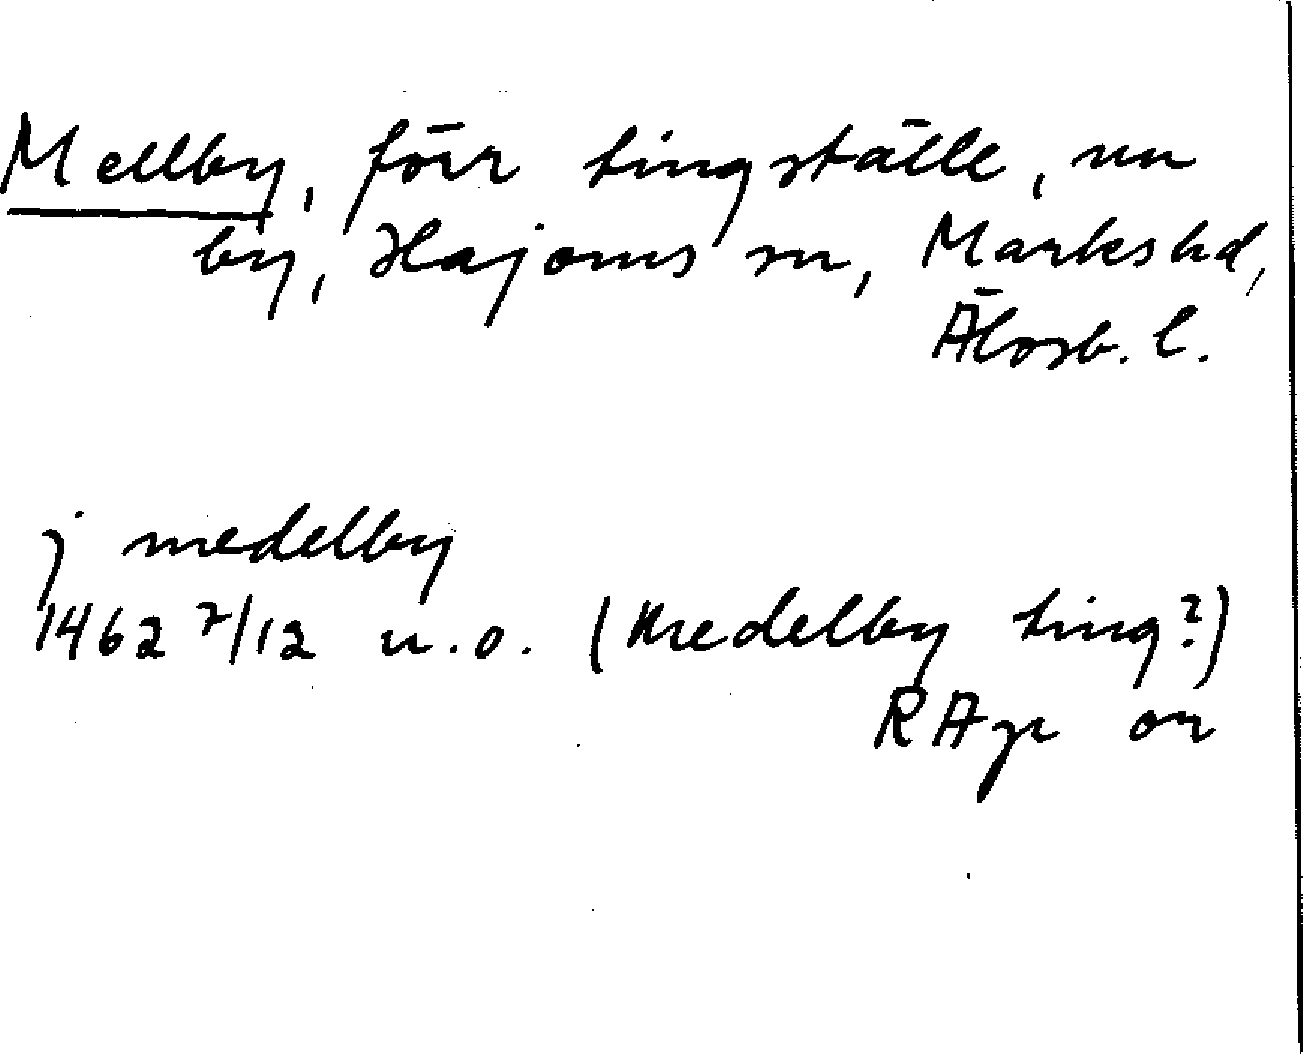 Mellby, förr tingställe, nu
by, Hajoms sn, Marks hd,
Älvsb. l.
j medelby
1462 2/12 u.o. (Medelby ting?)
RAp or